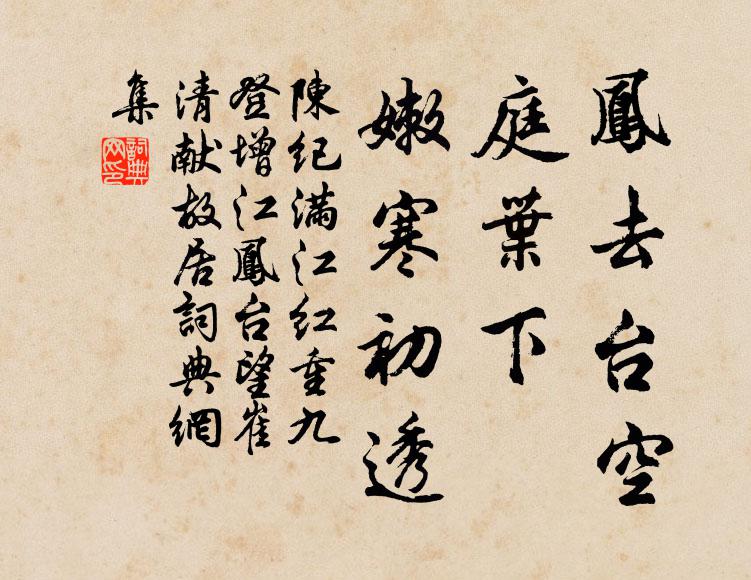 鳳去台空
庭葉下
嫩寒初透
陳纪满江红重九
登增江鳳台望崔
清献故居詞典網
集
詞典
网印